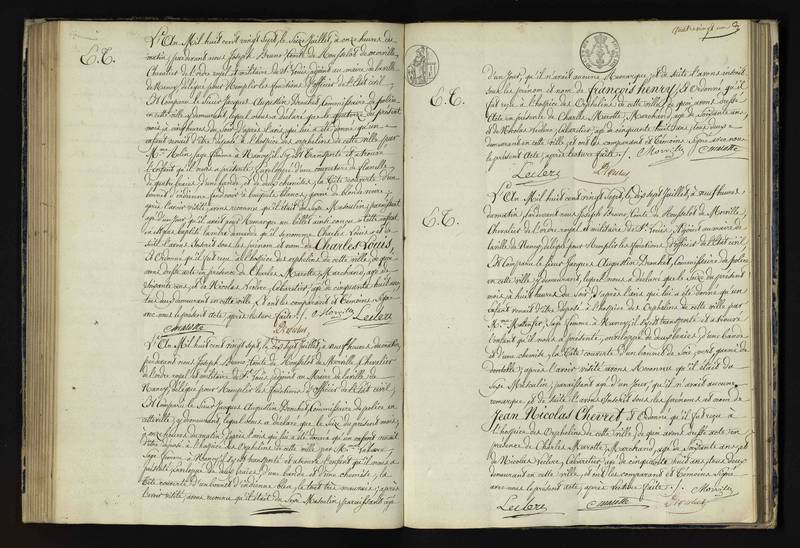 E.C.
L'An Mil huit cent vingt Sept, le Seize Juillet, à onze heures du
matin, pardevant nous Joseph Bruno Comte de
Chevalier de l'ordre royal et militaire de St Louis, adjoint au maire de la ville
de Nancy, délégué pour Remplir les fonctions d'Officier de l'État civil,
Est Comparu le Sieur Jacques Augustin Commissaire de police
en cette ville, y demeurant, lequel nous a déclaré que le quatorze du présent
mois à cinq heures du soir, d'après l'avis qui lui a été donné qu'un
enfant venait d'être déposé à l'hospice des orphelins de cette ville par
Mme sage femme à Nancy, il s'y est transporté et a trouvé
l'enfant qu'il nous a présenté, enveloppé d'une couverture de flanelle,
de quatre braies, d'une bande, et de deux chemises, la Tête couverte d'un
bonnet d'indienne
après l'avoir visité, avons reconnu qu'il était du Sexe Masculin, paraissant
âgé d'un jour, qu'il avait pour Remarque un billet ainsi conçu
baptisé la mère demande qu'il se nomme Charles Louis, et de
suite l'avons Inscrit sous les prénom et nom de Charles Louis,
et Ordonné qu'il fut reçu à l'hospice des orphelins de cette ville, de quoi
avons dressé acte en présence de Charles Marotte, Marchand, âgé de
soixante ans, et de Nicolas Leclerc, Cabaretier, âgé de cinquante huit ans,
tous deux demeurant en cette ville, et ont les comparant et témoins Signé
avec nous le présent acte, après lecture faite.
Leclerc
Marotte
L'An Mil huit cent vingt sept, le dix sept Juillet, à neuf heures du matin,
pardevant nous Joseph Bruno Comte de Chevalier
de l'ordre royal et militaire de St Louis, adjoint au Maire de la ville de
Nancy, délégué pour Remplir les fonctions d'officier de l'État civil,
Est Comparu le Sieur Jacques Augustin Commissaire de police en
cette ville, y demeurant, lequel nous a déclaré que le Seize du présent mois,
à onze heures du matin, d'après l'avis qui lui a été donné qu'un enfant venait
d'être déposé à l'hospice des Orphelins de cette ville par Mme
Sage femme à Nancy, il s'y est transporté et a trouvé l'enfant qu'il nous a
présenté, enveloppé de deux braies d'une bande et d'une chemise, la
Tête couverte d'un bonnet d'indienne bleu, le tout très mauvais; après
l'avoir visité, avons reconnu qu'il était du Sexe Masculin, paraissant âgé
quatre vingt un
E.C.
d'un Jour, qu'il n'avait aucune Remarque, et de suite l'avons inscrit
sous les prénom et nom de François henry, et Ordonné qu'il
fut reçu à l'hospice des Orphelins de cette ville, de quoi avons dressé
Acte en présence de Charles Marotte, Marchand, âgé de Soixante ans,
et de Nicolas Leclerc, Cabaretier, âgé de cinquante huit ans, tous deux
demeurant en cette ville, et ont les comparant et témoins Signé avec nous
le présent acte, après lecture faite.
Marotte
Leclerc
E.C.
L'An Mil huit cent vingt Sept, le dix sept Juillet, à neuf heures
du matin, pardevant nous Joseph Bruno Comte de
Chevalier de l'ordre royal et militaire de St Louis, Adjoint au maire de
la ville de Nancy, délégué pour Remplir les fonctions d'Officier de l'État civil,
Est Comparu le Sieur Jacques Augustin Commissaire de police
en cette ville, y demeurant, lequel nous a déclaré que le Seize du présent
mois, à huit heures du soir, d'après l'avis qui lui a été donné qu'un
enfant venait d'être déposé à l'hospice des Orphelins de cette ville par
Mme Sage femme à Nancy, il s'y est transporté et a trouvé
l'enfant qu'il nous a présenté, enveloppé de deux braies d'une bande
et d'une chemise, la Tête couverte d'un bonnet de Soie garni de
dentelle; après l'avoir visité avons Reconnu qu'il était du
Sexe Masculin, paraissant âgé d'un Jour, qu'il n'avait aucune
remarque, et de suite l'avons Inscrit sous les prénoms et nom de
Jean Nicolas Chevret, et Ordonné qu'il fut reçu à
l'hospice des Orphelins de cette ville, de quoi avons dressé acte en
présence de Charles Marotte, Marchand, âgé de Soixante ans, et
de Nicolas Leclerc, Cabaretier, âgé de cinquante huit ans, tous deux
demeurant en cette ville, et ont les comparant et témoins Signé
avec nous le présent acte, après lecture faite.
Leclerc
Marotte